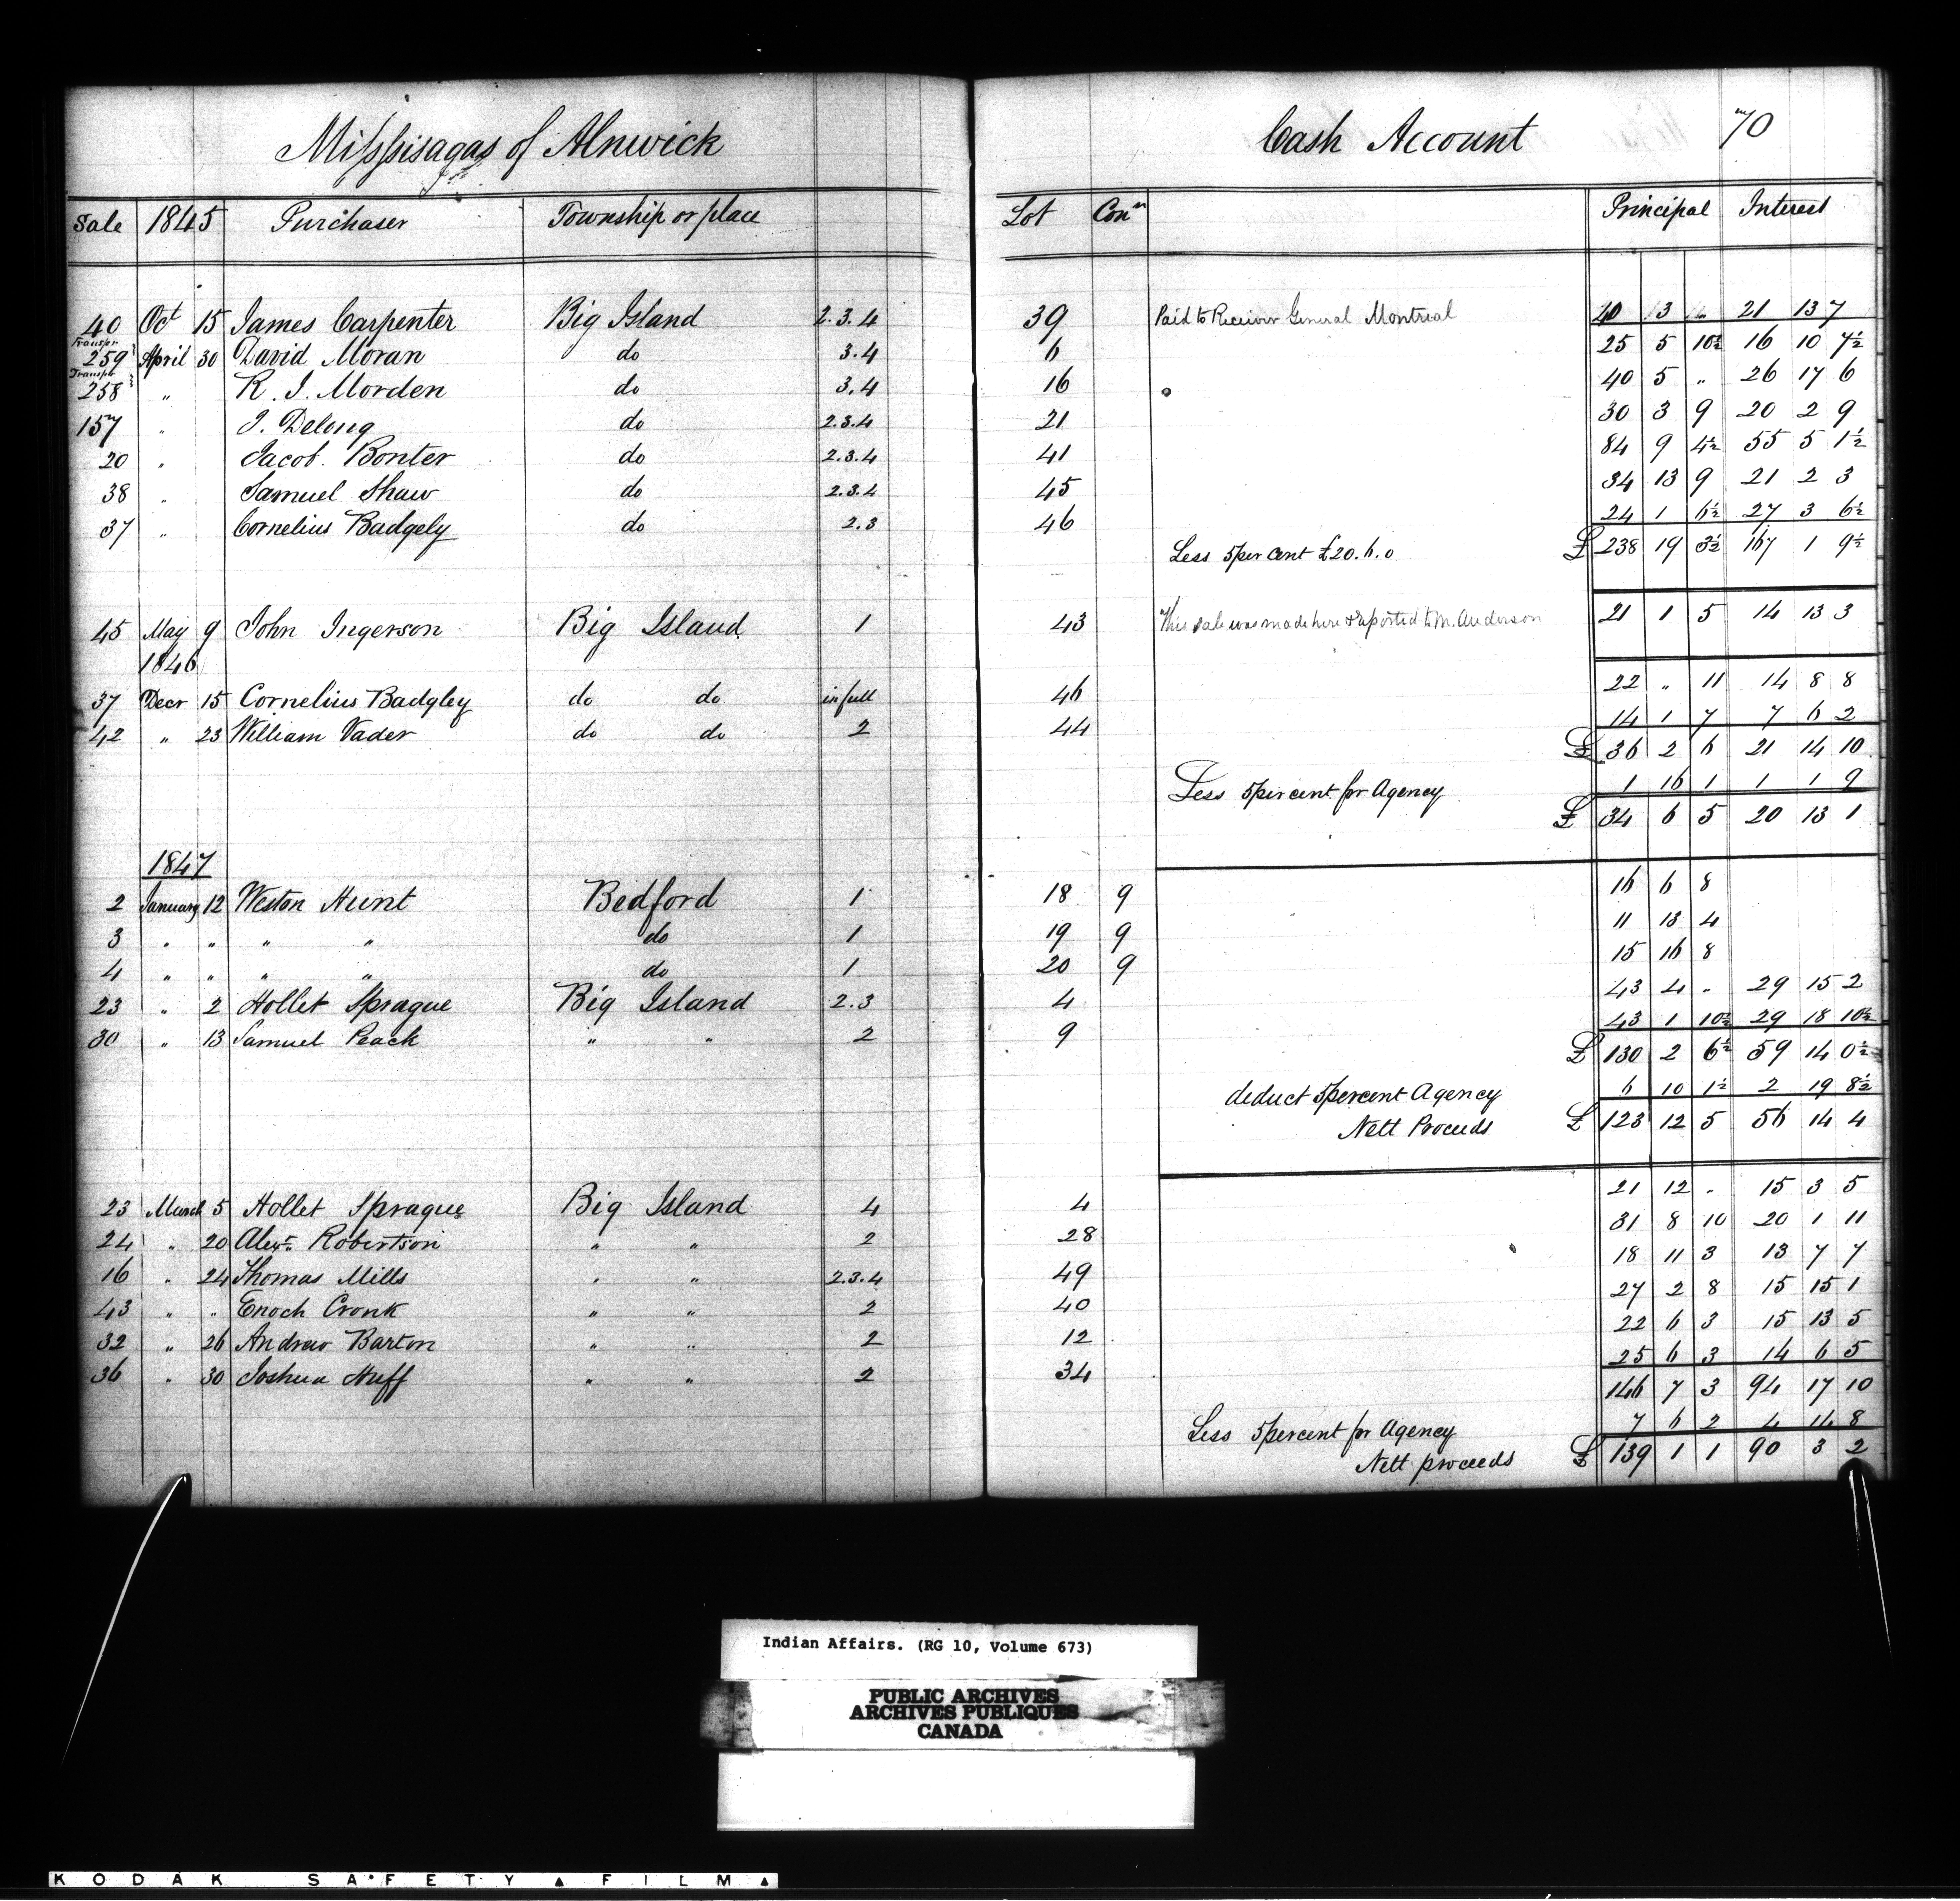 Mississagas of Alnwick Cash Account 70
Sale 1845 Purchaser Township or place Lot Conn Principal Interest
40 Oct 15 James Carpenter Big Island 2.3.4 39 Paid to Receiver General Montreal 40 13 21 13 7
Transfer
259 April 30 David Moran do 3.4 6 25 5 10½ 16 10 7½
Transfer
258 " R. J. Morden do 3.4 16 40 5 " 26 17 6
157 " J. Delong do 2.3.4 21 30 3 9 20 2 9
20 " Jacob Bonter do 2.3.4 41 84 9 4½ 55 5 1½
38 " Samuel Shaw do 2.3.4 45 34 13 9 21 2 3
37 " Cornelius Badgely do 2.3 46 24 1 6½ 27 3 6½
Less 5 per cent £20.6.0 £ 238 19 3½ 167 1 9½
45 May 9 John Ingerson Big Island 1 43 This sale was made here & reported to M. Anderson 21 1 5 14 13 3
1846
37 Decr 15 Cornelius Badgley do do in full 46 22 " 11 14 8 8
42 " 23 William Vader do do 2 44 14 1 7 7 6 2
£ 36 2 6 21 14 10
Less 5 per cent for Agency 1 16 1 1 1 9
£ 34 6 5 20 13 1
1847
2 January 12 Weston Hunt Bedford 1 18 9 16 6 8
3 " " " " do 1 19 9 11 13 4
4 " " " " do 1 20 9 15 16 8
23 " 2 Hollet Sprague Big Island 2.3 4 43 4 " 29 15 2
30 " 13 Samuel Peack " " 2 9 43 1 10½ 29 18 10½
£ 130 2 6½ 59 14 0½
deduct 5 percent Agency 6 10 1½ 2 19 8½
Nett Proceeds £ 123 12 5 56 14 4
23 March 5 Hollet Sprague Big Island 4 4 21 12 " 15 3 5
24 " 20 Alexr. Robertson " " 2 28 31 8 10 20 1 11
16 " 24 Thomas Mills " " 2.3.4 49 18 11 3 13 7 7
43 " " Enoch Cronk " " 2 40 27 2 8 15 15 1
32 " 26 Andrew Barton " " 2 12 22 6 3 15 13 5
36 " 30 Joshua Huff " " 2 34 25 6 3 14 6 5
146 7 3 94 17 10
Less 5 percent for Agency 7 6 2 4 14 8
Nett proceeds £ 139 1 1 90 3 2
Indian Affairs. (RG 10, Volume 673)
PUBLIC ARCHIVES
ARCHIVES PUBLIQUES
CANADA
KODAK SAFETY FILM